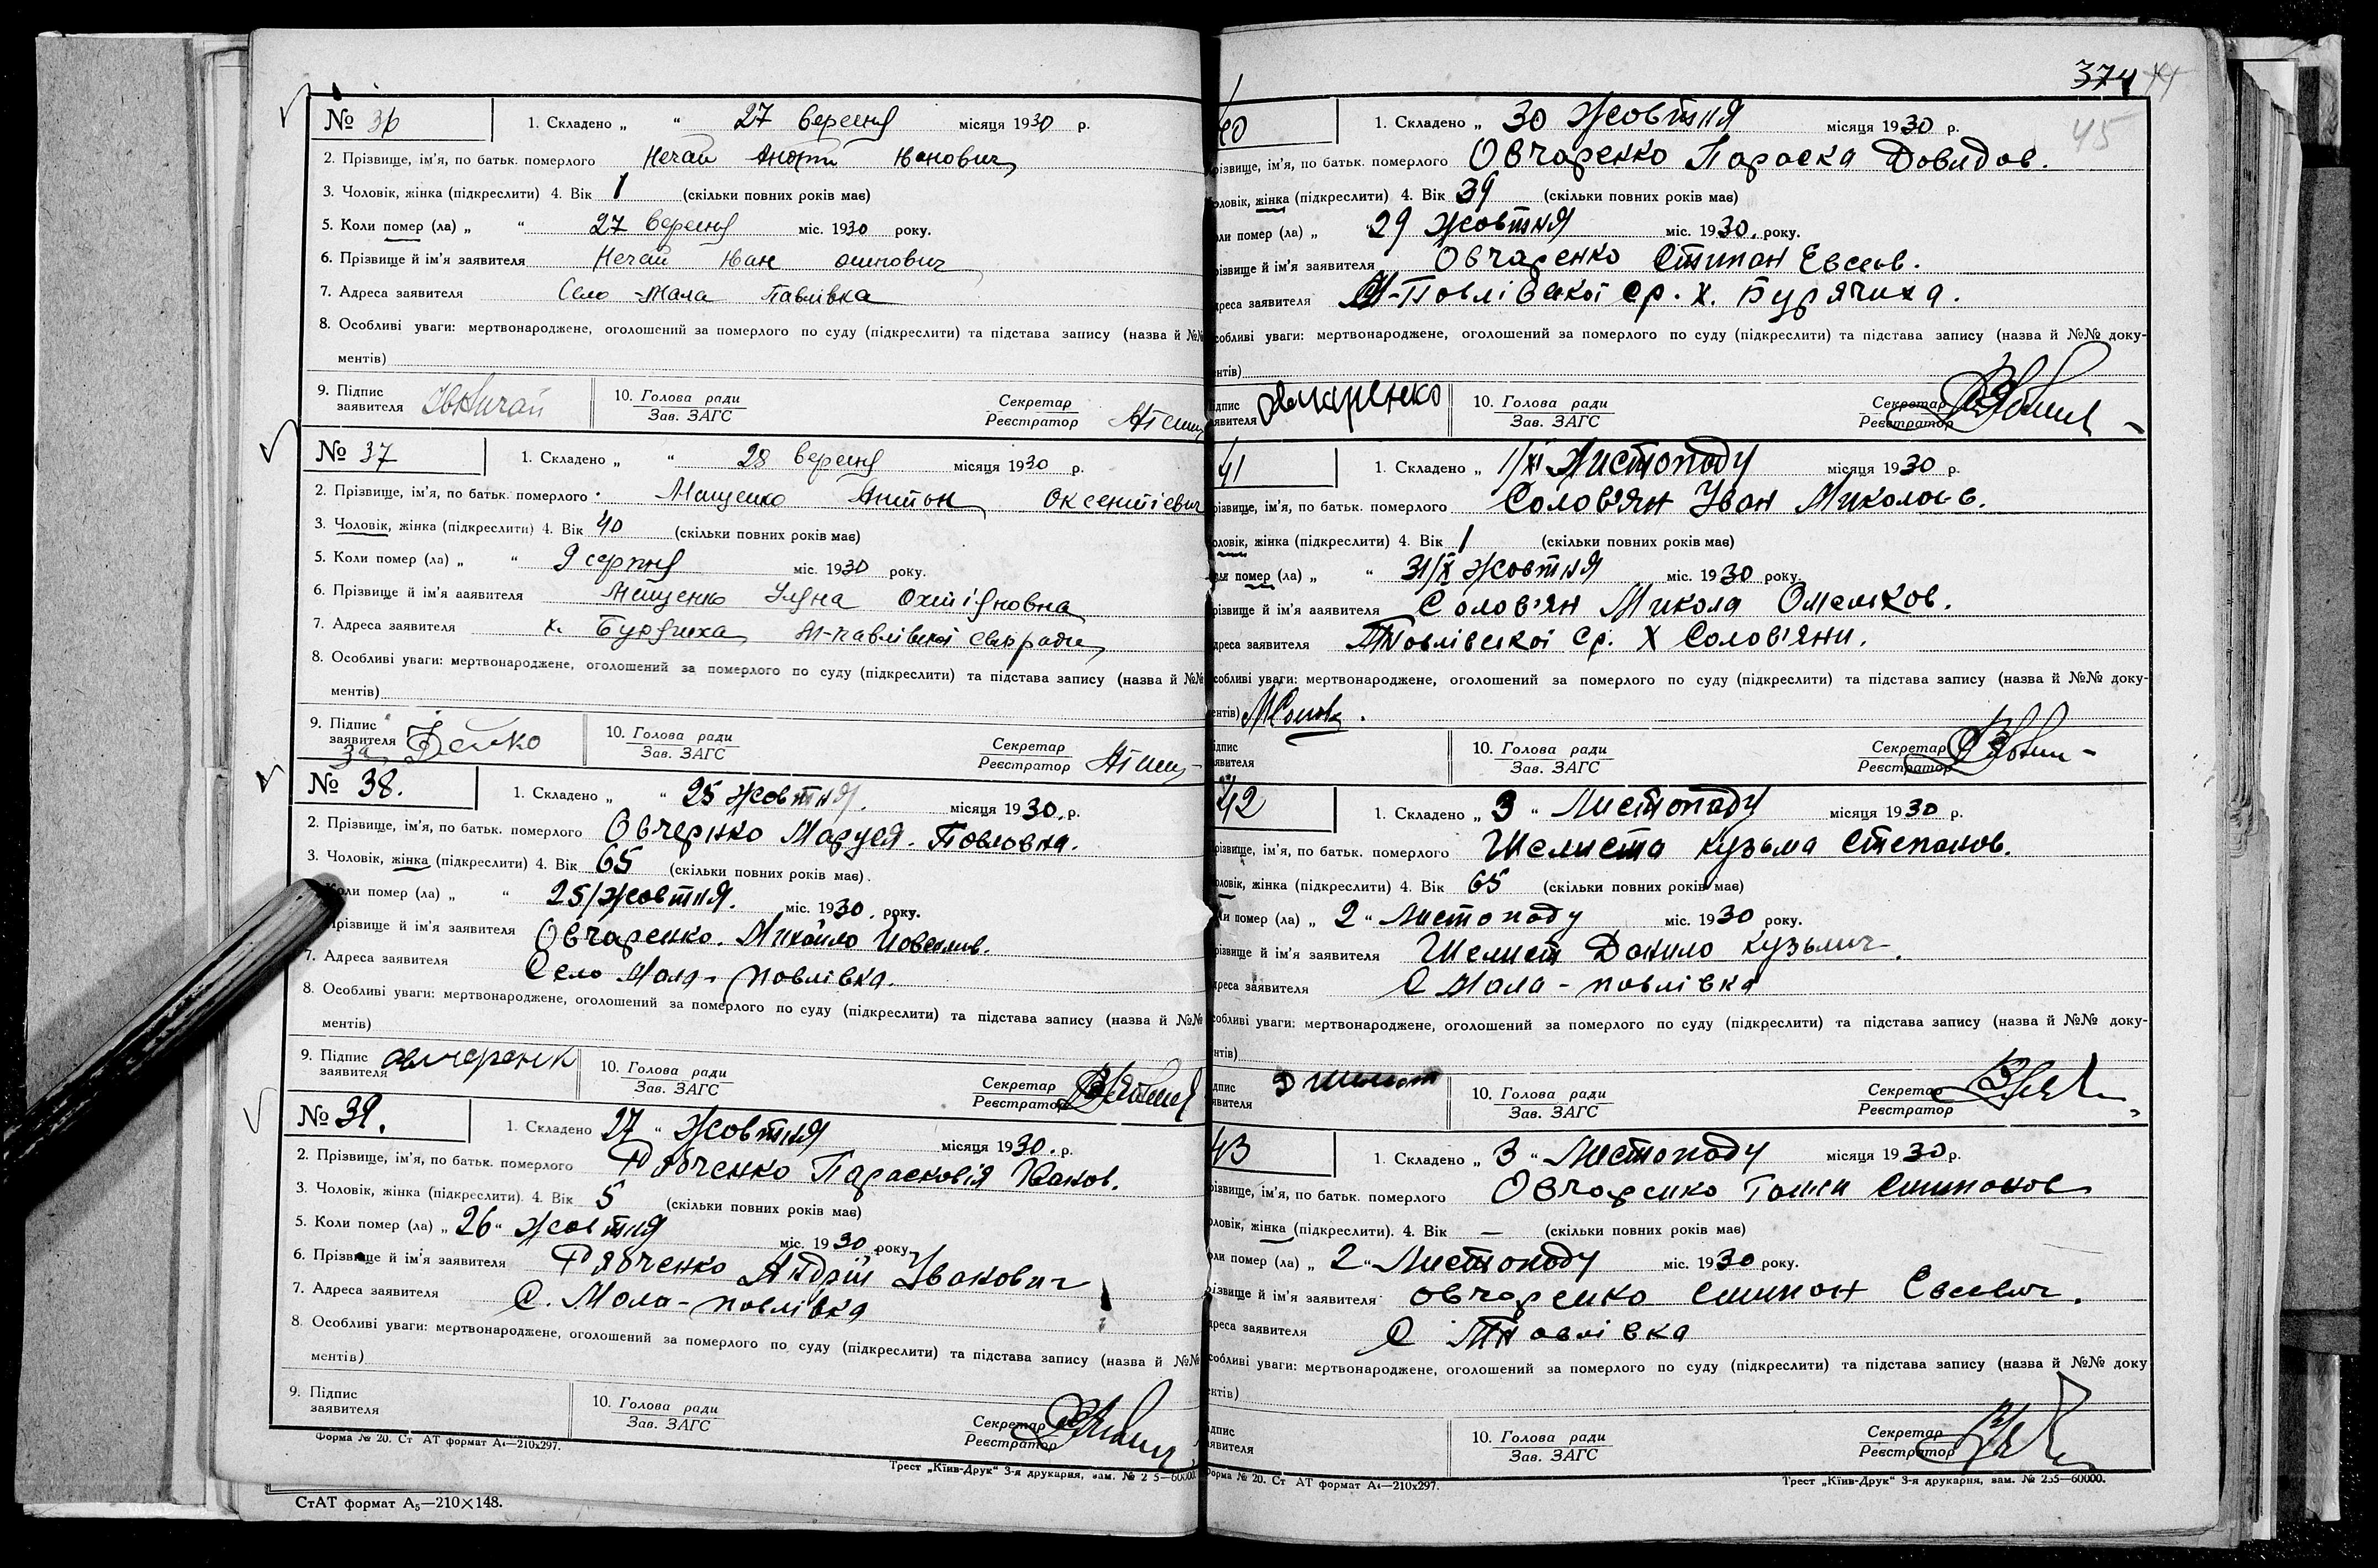 № 36
1. Складено „ “ 27 вересня місяця 1930 р.
2. Прізвище, ім'я, по батьк. померлого Нечай Іванович
3. Чоловік, жінка (підкреслити) 4. Вік 1 (скільки повних років має)
5. Коли помер (ла) „ “ 27 вересня міс. 1930 року.
6. Прізвище й ім'я заявителя Нечай Іван
7. Адреса заявителя Село -Мала Павлівка
8. Особливі уваги: мертвонароджене, оголошений за померлого по суду (підкреслити) та підстава запису (назва й №№
ментів)
9. Підпис заявителя
10. Голова ради Зав. ЗАГС
Секретар Реєстратор
№ 37
1. Складено „ “ 28 вересня місяця 1930 р.
2. Прізвище, ім'я, по батьк. померлого Мащенко Антон Оксентіевич
3. Чоловік, жінка (підкреслити) 4. Вік 40 (скільки повних років має)
5. Коли помер (ла) „ “ 9 серпня міс. 1930 року.
6. Прізвище й ім'я заявителя Мащенко Уляна
7. Адреса заявителя х. Бурячиха М-павлівської
8. Особливі уваги: мертвонароджене, оголошений за померлого по суду (підкреслити) та підстава запису (назва й №№
ментів)
9. Підпис заявителя за
10. Голова ради Зав. ЗАГС
Секретар Реєстратор
№ 38.
1. Складено „ “ 25 жовтня. місяця 1930. р.
2. Прізвище, ім'я, по батьк. померлого Маруся. Павловна.
3. Чоловік, жінка (підкреслити) 4. Вік 65 (скільки повних років має).
Коли помер (ла) „ “ 25/жовтня. міс. 1930. року.
Прізвище й ім'я заявителя Овчаренко. Михайло
7. Адреса заявителя Село Мала-павлівка.
8. Особливі уваги: мертвонароджене, оголошений за померлого по суду (підкреслити) та підстава запису (назва й №№
ментів)
9. Підпис заявителя
10. Голова ради Зав. ЗАГС
Секретар Реєстратор
№ 39.
1. Складено 27 “ Жовтня місяця 1930. р.
2. Прізвище, ім'я, по батьк. померлого Рябченко Парасковія
3. Чоловік, жінка (підкреслити). 4. Вік 5 (скільки повних років має)
5. Коли помер (ла) „ 26 “ жовтня міс. 1930 року
6. Прізвище й ім'я заявителя Рябченко Андрій Іванович
7. Адреса заявителя С. Мала-павлівка
8. Особливі уваги: мертвонароджене, оголошений за померлого по суду (підкреслити) та підстава запису (назва й №№
ментів)
9. Підпис заявителя
10. Голова ради Зав. ЗАГС
Секретар Реєстратор
Форма № 20. Ст АТ формат А4—210х297.
Трест „Київ-Друк“ 3-я друкарня, зам. № 2 5—60000.
СтАТ формат А5—210×148.
374
45
40
1. Складено „ 30 Жовтня місяця 1930 р.
різвище, ім'я, по батьк. померлого Овчаренко Параска Давидов.
оловік, жінка (підкреслити) 4. Вік 39 (скільки повних років має)
ли помер (ла) „ “ 29 жовтня міс. 1930. року.
різвище й ім'я заявителя Овчаренко Степан Евсеев.
дреса заявителя М-Павлівської ср. х. Бурячиха.
собливі уваги: мертвонароджене, оголошений за померлого по суду (підкреслити) та підстава запису (назва й №№ доку-
ентів)
ідпис аявителя Овчаренко
10. Голова ради Зав. ЗАГС
Секретар Реєстратор
41
1. Складено „ 1/XI Листопаду місяця 1930 р.
різвище, ім'я, по батьк. померлого Солов'ян Іван Миколаєв.
оловік, жінка (підкреслити) 4. Вік 1 (скільки повних років має)
помер (ла) „ “ 31/X Жовтня міс. 1930 року.
різвище й ім'я заявителя Солов'ян Микола Омельков.
дреса заявителя МПавлівської Ср. Х Солов'яни.
собливі уваги: мертвонароджене, оголошений за померлого по суду (підкреслити) та підстава запису (назва й №№ доку-
ентів)
ідпис аявителя
10. Голова ради Зав. ЗАГС
Секретар Реєстратор
42
1. Складено „ 3 “ Листопаду місяця 1930 р.
різвище, ім'я, по батьк. померлого Шелиста Кузьма Степанов.
оловік, жінка (підкреслити) 4. Вік 65 (скільки повних років має)
ли помер (ла) „ 2 “ Листопаду міс. 1930 року.
різвище й ім'я заявителя Шелист Данило Кузьмич.
дреса заявителя С Мала-павлівка
собливі уваги: мертвонароджене, оголошений за померлого по суду (підкреслити) та підстава запису (назва й №№ доку-
ентів)
ідпис аявителя Д Шелест
10. Голова ради Зав. ЗАГС
Секретар Реєстратор
43
1. Складено „ 3 “ Листопаду місяця 1930 р.
різвище, ім'я, по батьк. померлого Овчаренко
оловік, жінка (підкреслити). 4. Вік — (скільки повних років має)
оли помер (ла) „ 2 “ Листопаду міс. 1930 року.
різвище й ім'я заявителя Овчаренко Степан Евсеевич.
дреса заявителя С МПавлівка
собливі уваги: мертвонароджене, оголошений за померлого по суду (підкреслити) та підстава запису (назва й №№ доку
ентів)
ідпис аявителя
10. Голова ради Зав. ЗАГС
Секретар Реєстратор
Форма № 20. Ст АТ формат А4—210х297.
Трест „Київ-Друк“ 3-я друкарня, зам. № 235—60000.